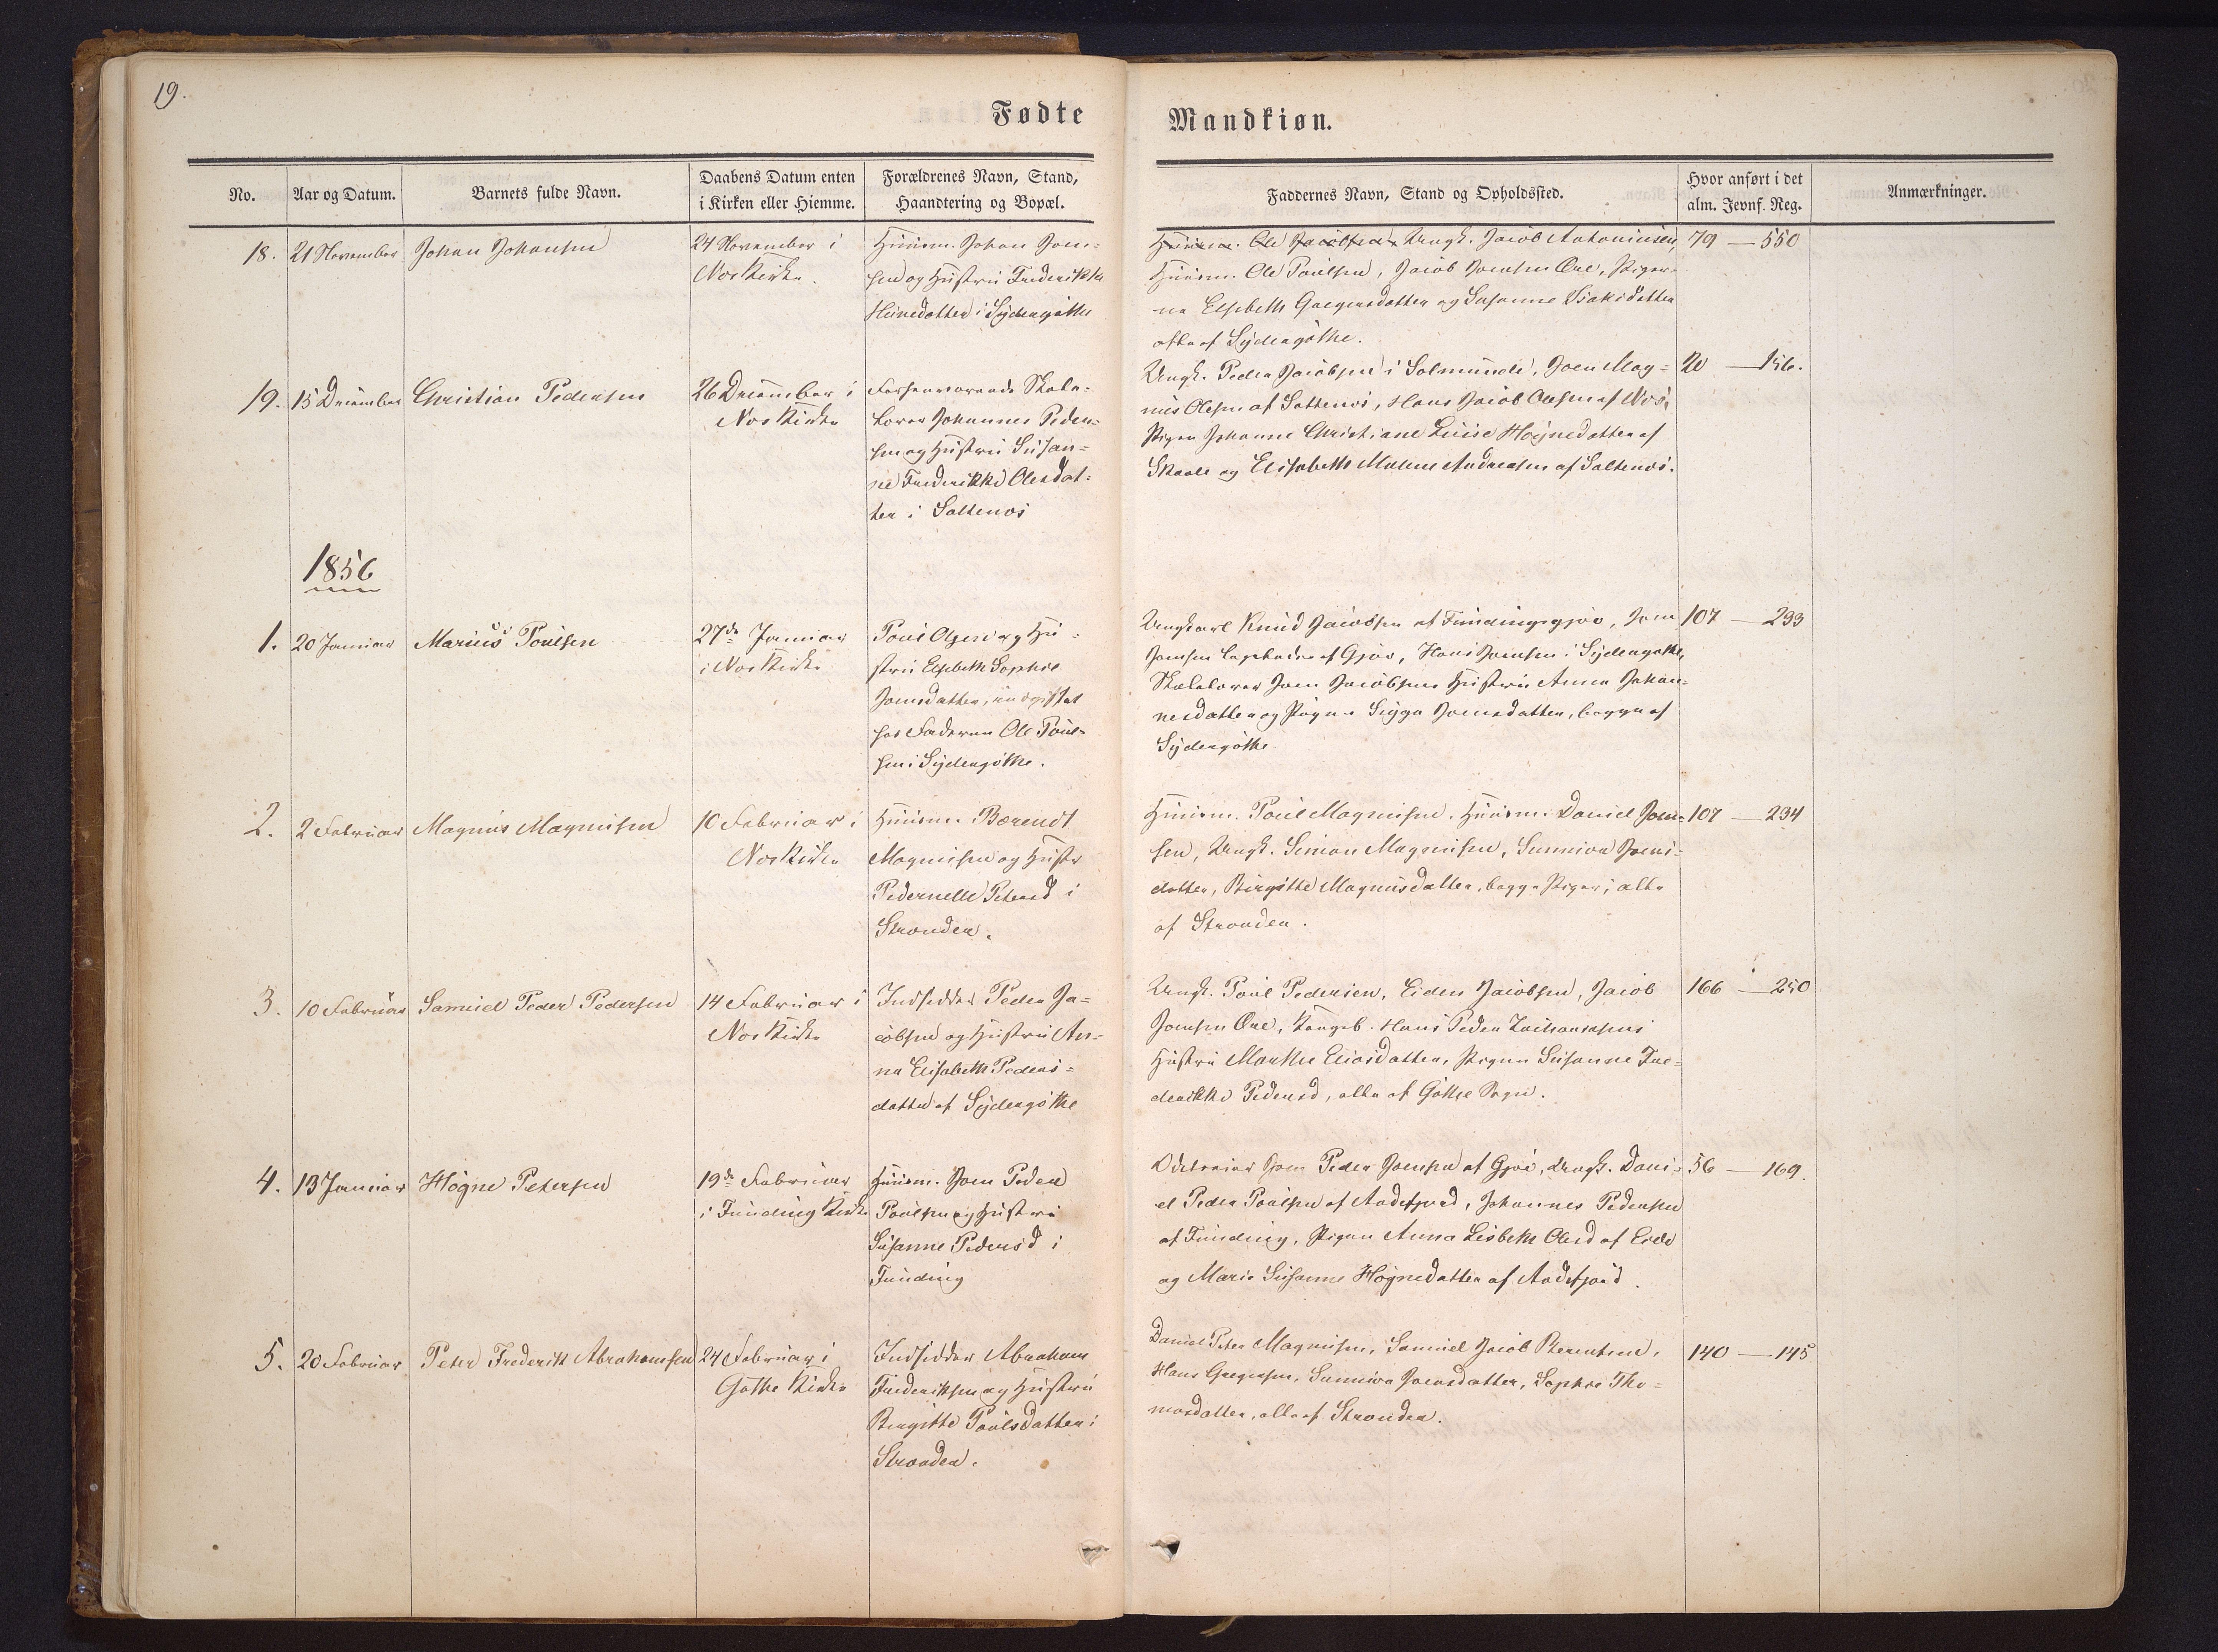 19.
Fødte
Mandkiøn.
No.
Aar og Datum.
Barnets fulde Navn.
Daabens Datum enten
i Kirken eller Hiemme.
Forældrenes Navn, Stand,
Haandtering og Bopæl.
Faddernes Navn, Stand og Opholdssted.
Hvor anført i det
alm. Jevnf. Reg.
Anmærkninger.
18.
21 November
Johan Johansen
24 November i
Næs Kirke.
Huusm. Johan Joen-
sen og Hustru Frederikke
Heinedatter i Sydergøthe
Huusm. Ole Jacobsen, Ungk. Jacob Antoniusen,
Huusm. Ole Poulsen, Jacob Joensen Øre, Piger-
ne Elsebeth Gregersdatter og Susanne Isaksdatter
alle af Sydergøthe.
79 — 550
19.
15 December
Christian Pedersen
26 December i
Næs Kirke
Forhenværende Skole-
lærer Johannes Peder-
sen og Hustru Susan-
ne Frederikke Olesdat-
ter i Saltenæs
Ungk. Peder Jacobsen i Solmunde, Joen Mag-
nus Olesen af Saltenæs, Hans Jacob Olesen af Næs,
Pigen Johanne Christiane Luise Høgnedatter af
Skaale og Elisabeth Malene Andreasen af Saltenæs.
20 — 156.
1856
1.
20 Januar
Marius Poulsen
27de Januar
i Næs Kirke
Poul Olesen og Hu-
stru Elsebeth Sophie
Joensdatter, indgiftet
hos Faderen Ole Poul-
sen i Sydergøthe.
Ungkarl Knud Jacobsen af Fundingsgjov, Joen
Joensen af Gjov, Hans Joensen i Sydergøthe,
Skolelærer Joen Jacobsens Hustru Anna Johan-
nesdatter og Pigen Sigga Joensdatter, begge af
Sydergøthe
107 — 233
2.
2 Februar
Magnus Magnusen
10 Februar i
Næs Kirke
Huusm. Bærendt
Magnusen og Hustr
Pedernelle Petersd i
Stronden.
Huusm. Poul Magnusen, Huusm. Daniel Joen-
sen, Ungk. Simon Magnusen, Sunniva Joens-
datter, Birgithe Magnusdatter, begge Piger; alle
af Stronden.
107 — 234
3.
10 Februar
Samuel Peder Pedersen
14 Februar i
Næs Kirke
Indsidder Peder Ja-
cobsen og Hustru An-
na Elisabeth Peders-
datter af Sydergøthe
Ungk. Poul Pedersen, Eiden Jacobsen, Jacob
Joensen Øre, Kongsb. Hans Peder Zachariasens
Hustru Marthe Eliasdatter, Pigen Susanne Fre-
derikke Pedersd, alle af Gøthe Sogn.
166 — 250
4.
13 Januar
Høgne Petersen
19de Februar
i Funding Kirke
Huusm. Joen Peder
Poulsen og Hustru
Susanne Pedersd i
Funding
Odelseier Joen Peder Joensen af Gjov, Ungk. Dani-
el Peder Poulsen af Andefjord, Johannes Pedersen
af Funding, Pigen Anna Lisbeth Olesd af Eide
og Marie Susanne Høgnedatter af Andefjord.
56 — 169.
5.
20 Februar
Peter Frederik Abrahamsen
24 Februar i
Gøthe Kirke
Indsidder Abraham
Frederiksen og Hustru
Birgitte Poulsdatter i
Stronden.
Daniel Peter Magnusen, Samuel Jacob Berentsen,
Hans Gregersen, Sunniva Joensdatter, Sophie Tho-
masdatter, alle af Stronden.
140 — 145